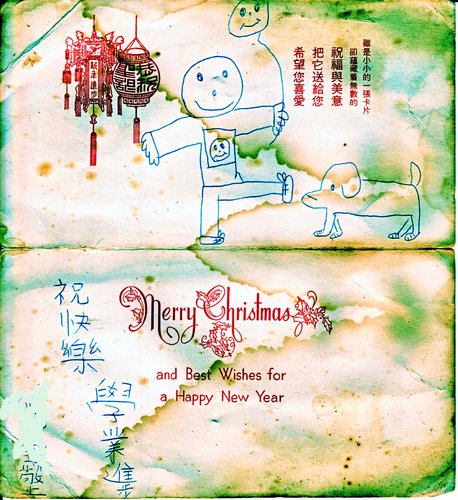 雖是小小的一張卡片
卻蘊藏着無數的
祝福與美意
把它送給您
希望您喜愛
Merry Christmas
and Best Wishes for
a Happy New Year
祝快樂
學業進步
敬上